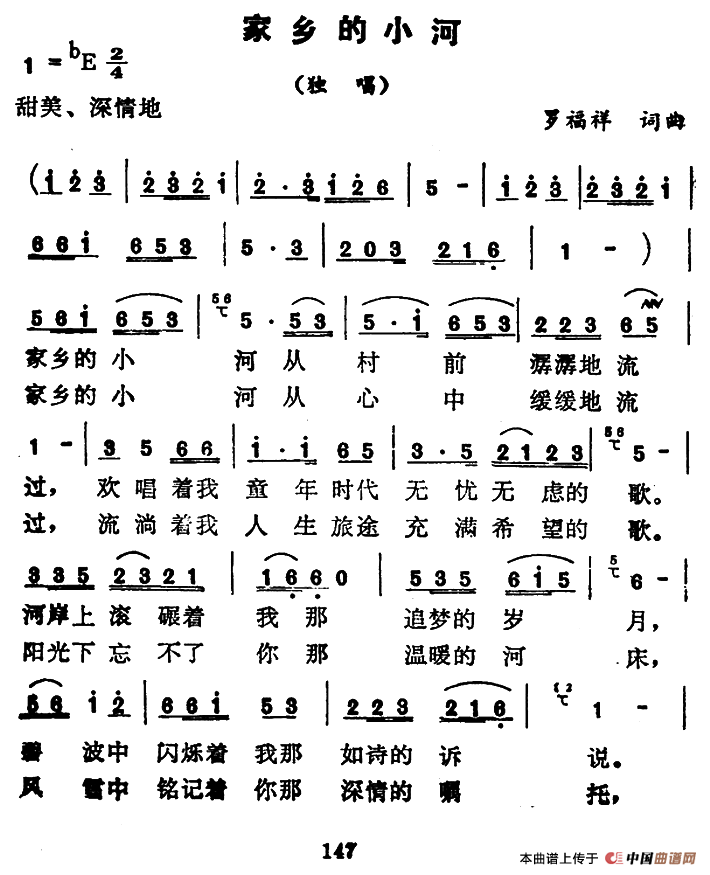 家乡的小河
1 = ᵇE 2/4
（独 唱）
甜美、深情地
罗福祥 词曲
( 1 2 3 | 2 3 2 1 | 2 · 3 1 2 6 | 5 - | 1 2 3 | 2 3 2 1 |
6 6 1 6 5 3 | 5 · 3 | 2 0 3 2 1 6 | 1 - ) |
5 6 1 6 5 3 | 5 6 5 · 5 3 | 5 · 1 6 5 3 | 2 2 3 6 5 |
家乡的小 河从 村 前 潺潺地流
家乡的小 河从 心 中 缓缓地流
1 - | 3 5 6 6 | 1 · 1 6 5 | 3 · 5 2 1 2 3 | 5 6 5 - |
过，欢唱着我 童 年时代 无忧无虑的 歌。
过，流淌着我 人 生旅途 充满希望的 歌。
3 3 5 2 3 2 1 | 1 6 6 0 | 5 3 5 6 1 5 | 5 6 - |
河岸上滚 碾着 我那 追梦的岁 月，
阳光下忘 不了 你那 温暖的河 床，
5 6 1 2 | 6 6 1 5 3 | 2 2 3 2 1 6 | 1 - |
碧 波中 闪烁着 我那 如诗的诉 说。
风 雪中 铭记着 你那 深情的嘱 托，
147
本曲谱上传于 中国曲谱网